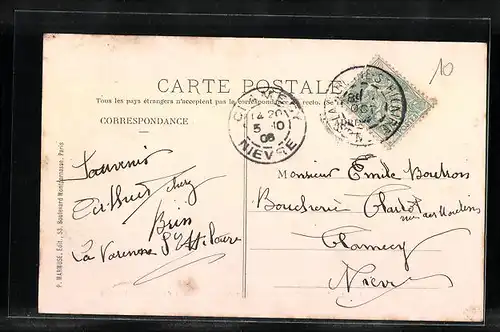 10
CARTE POSTALE
Tous les pays étrangers n'acceptent pas la correspondance au recto.
CORRESPONDANCE
CLAMECY
14 20
5 10
06
NIEVRE
Souvenir
chez
La Varenne St Hilaire
Monsieur Emile Boutron
Boucherie Charlot
rue aux Moulins
Clamecy
Nièvre
P. MARMUSE, Edit., 53, Boulevard Montparnasse, Paris